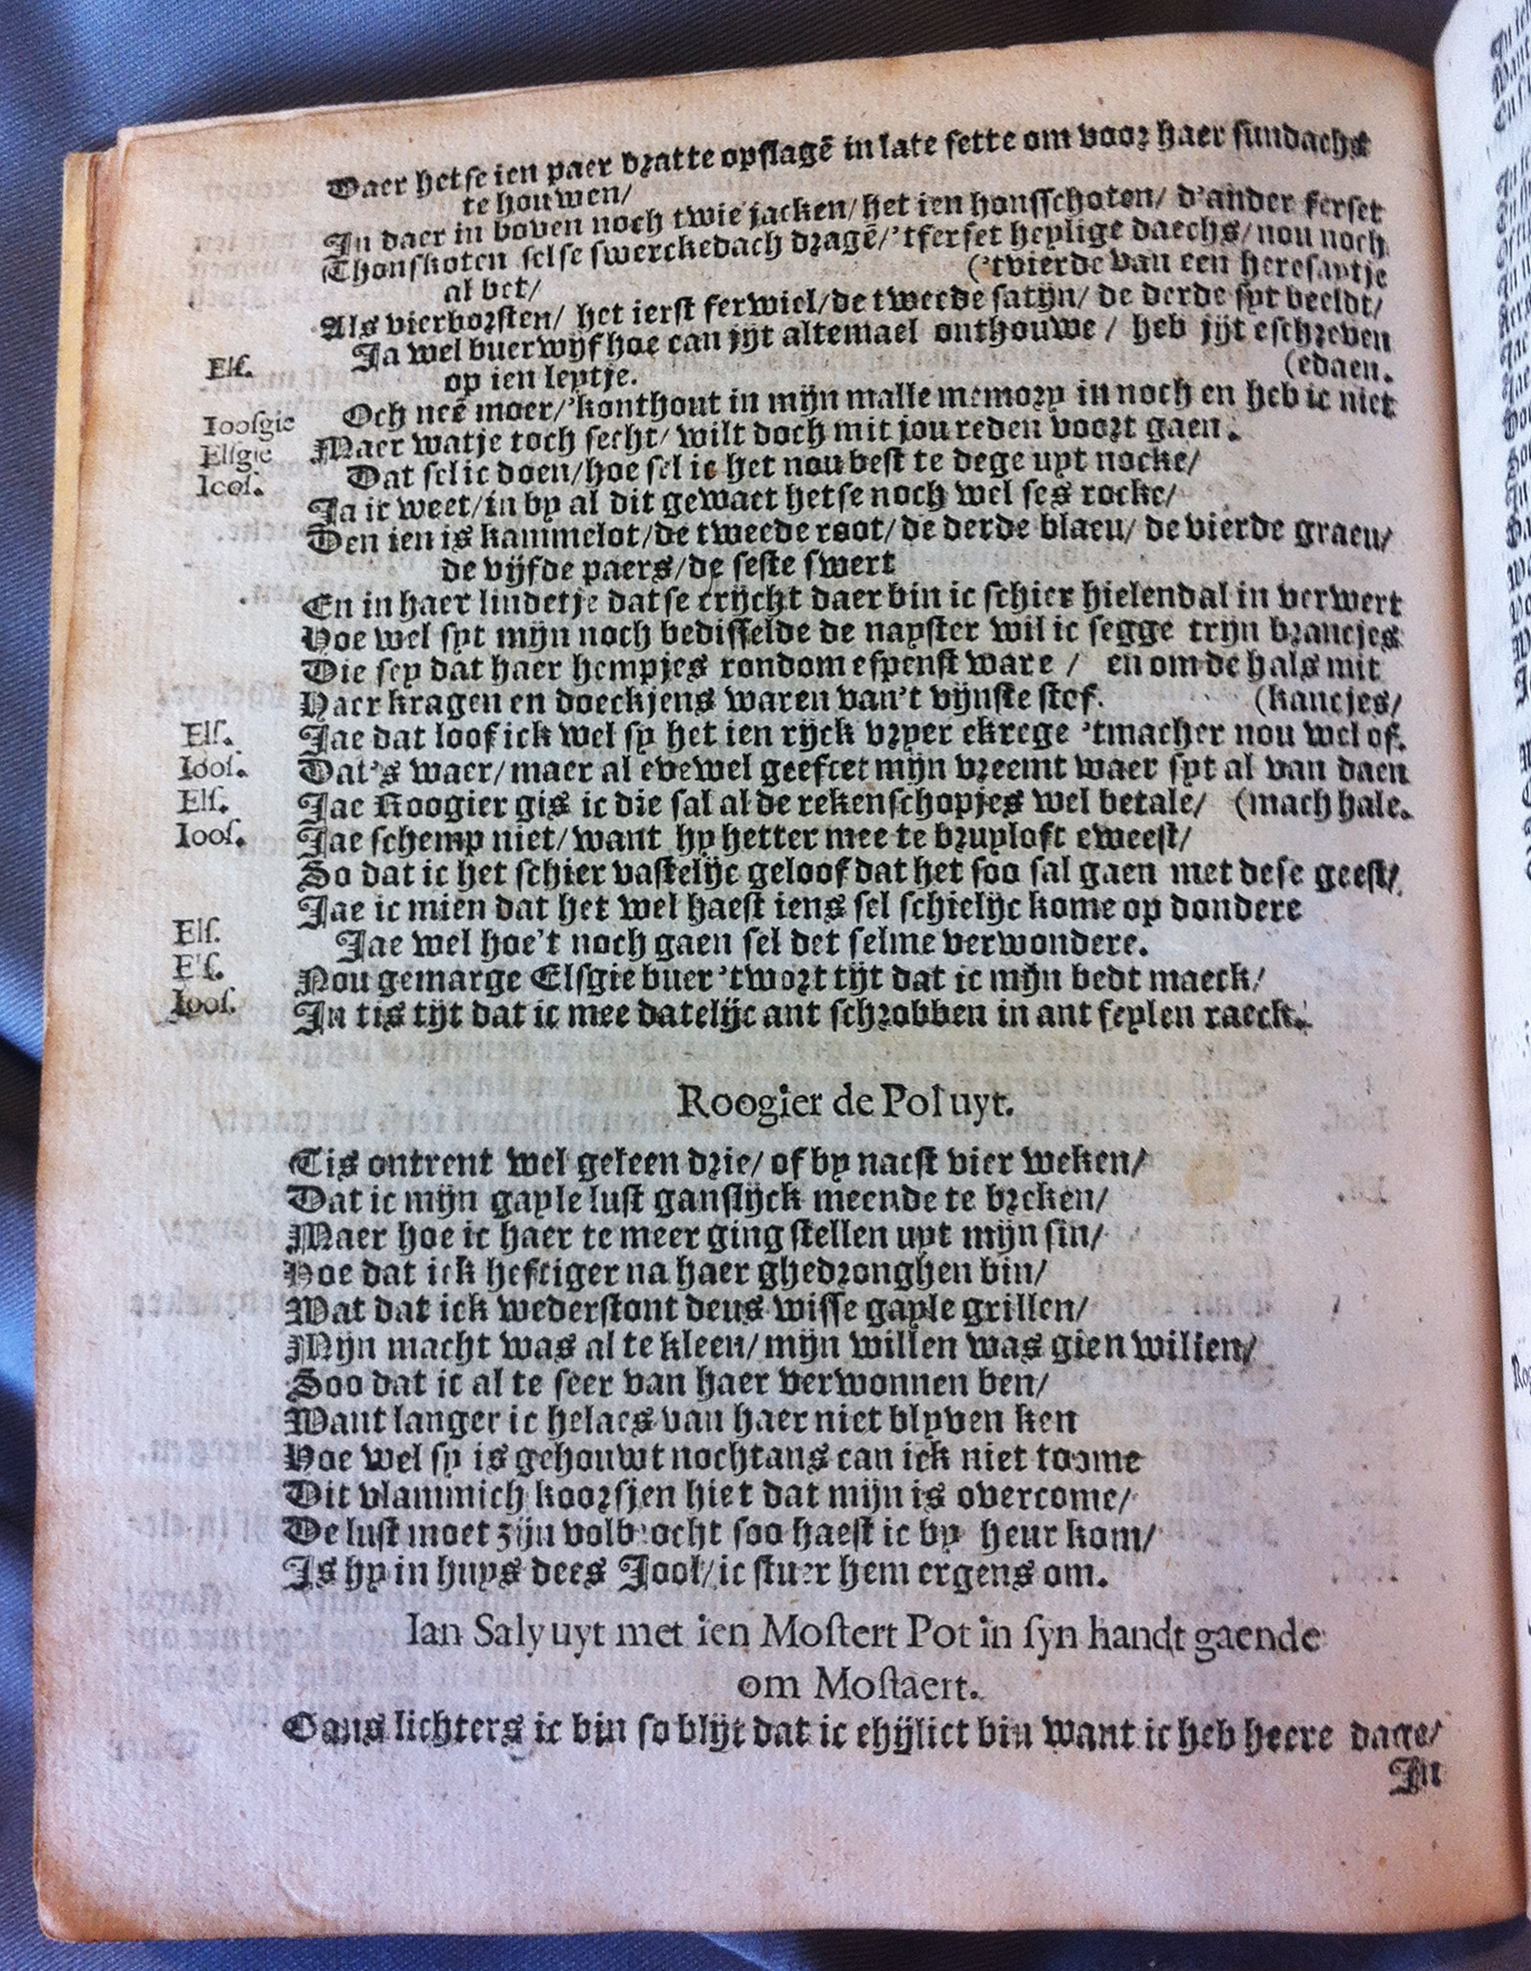 Daer hetse ien paer dratte opslagē in late sette om voor haer sundachs
te houwen/
In daer in boven noch twie jacken/ het ien honsschoten/ d'ander ferset
Thonskoten selse swerckedach dragē/ 'tferset heylige daechs/ nou noch
('tvierde van een heresaytje
al bet/
Als vierborsten/ het ierst ferwiel/ de tweede satijn/ de derde syt beeldt/
Els. Ja wel buerwijf hoe can jijt altemael onthouwe/ heb jijt eschreven
(edaen.
op ien leytje.
Ioosgie Och neē moer/ 'konthout in mijn malle memory in noch en heb ic niet
Elsgie Maer watje toch secht/ wilt doch mit jou reden voort gaen.
Ioos. Dat sel ic doen/ hoe sel ic het nou best te dege uyt nocke/
Ja ic weet/ in by al dit gewaet hetse noch wel ses rocke/
Den ien is kammelot/ de tweede root/ de derde blaeu/ de vierde graeu/
de vijfde paers/ de seste swert
En in haer lindetje datse crijcht daer bin ic schier hielendal in verwert
Hoe wel syt mijn noch bediffelde de nayster wil ic segge trijn brancjes
Die sey dat haer hempjes rondom espenst ware / en om de hals mit
Haer kragen en doeckjens waren van't vijnste stof. (kancjes/
Els. Jae dat loof ick wel sy het ien rijck vryer ekrege 'tmacher nou wel of.
Ioos. Dat's waer/ maer al evewel geeftet mijn vreemt waer syt al van daen
Els. Jae Roogier gis ic die sal al de rekenschopjes wel betale/ (mach hale.
Ioos. Jae schemp niet/ want hy hetter mee te bruyloft eweest/
So dat ic het schier vastelijc geloof dat het soo sal gaen met dese geest/
Jae ic mien dat het wel haest iens sel schielijc kome op dondere
Els. Jae wel hoe't noch gaen sel det selme verwondere.
Els. Nou gemarge Elsgie buer 'twort tijt dat ic mijn bedt maeck/
Ioos. In tis tijt dat ic mee datelijc ant schrobben in ant feylen raeck.
Roogier de Pol uyt.
Tis ontrent wel geleen drie/ of by naest vier weken/
Dat ic mijn gayle lust ganslijck meende te breken/
Maer hoe ic haer te meer ging stellen uyt mijn sin/
Hoe dat ick heftiger na haer ghedronghen bin/
Wat dat ick wederstont deus wisse gayle grillen/
Mijn macht was al te kleen/ mijn willen was gien willen/
Soo dat ic al te seer van haer verwonnen ben/
Want langer ic helaes van haer niet blyven ken
Hoe wel sy is gehouwt nochtans can ick niet toome
Dit vlammich koorsjen hiet dat mijn is overcome/
De lust moet zijn volbrocht soo haest ic by heur kom/
Is hy in huys dees Jool/ ic stuer hem ergens om.
Ian Saly uyt met ien Mostert Pot in syn handt gaende
om Mostaert.
Gans lichters ic bin so blijt dat ic ehijlict bin want ic heb heere dage/
In